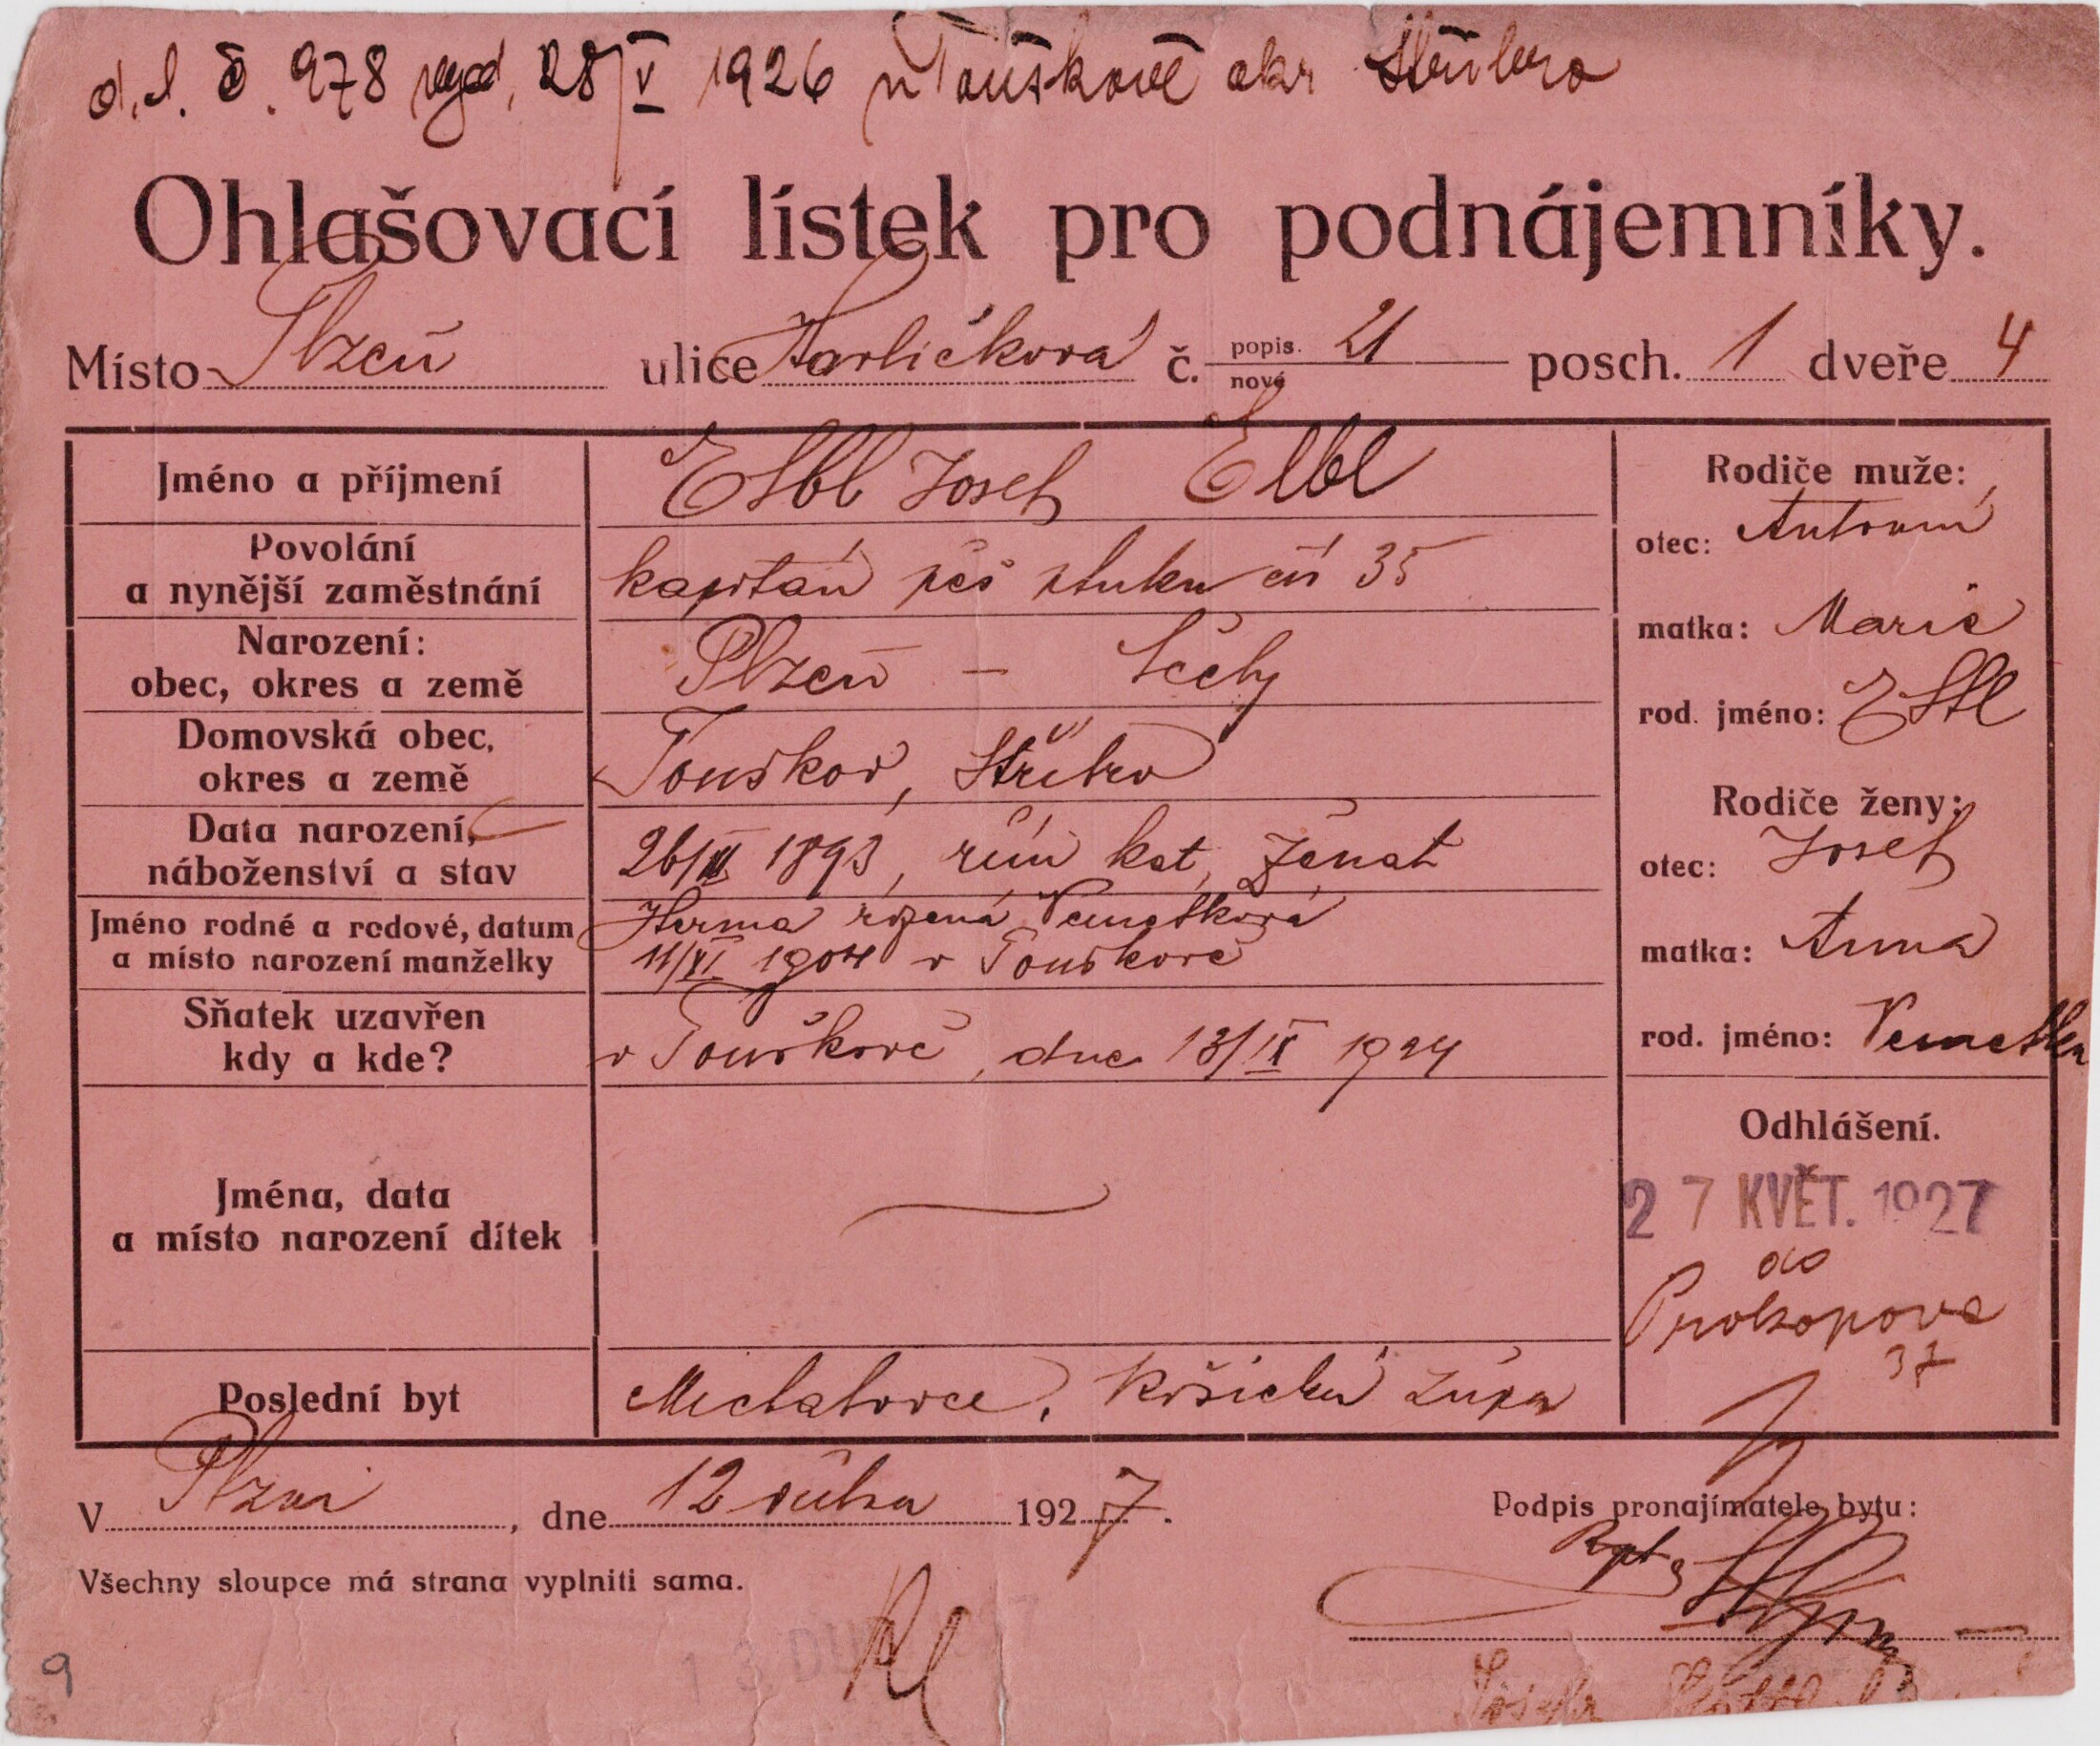 d. l. č. 978 vyd. 28/V 1926 v Touškově okr Stříbro
Ohlašovací lístek pro podnájemníky.
Místo Plzeň ulice Havlíčkova č. popis. 21 nové posch. 1 dveře 4
Jméno a příjmení Elbl Josef Elbl
Povolání
a nynější zaměstnání kapitán pěš pluku čís 35
Narození:
obec, okres a země Plzeň – Čechy
Domovská obec,
okres a země Touškov, Stříbro
Data narození,
náboženství a stav 26/ 1893, řím kat, ženat
Jméno rodné a rodové, datum Herma rozená
a místo narození manželky 11/VI 1904 v Touškově
Sňatek uzavřen
kdy a kde? v Touškově, dne 13/IX 1924
Jména, data
a místo narození dítek
Poslední byt Michalovce, Košická župa
Rodiče muže:
otec: Antonín
matka: Marie
rod. jméno: Elbl
Rodiče ženy:
otec: Josef
matka: Anna
rod. jméno:
Odhlášení.
27 KVĚT. 1927
do
Prokopova
37
V Plzni, dne 12 1927.
Podpis pronajímatele bytu:
Všechny sloupce má strana vyplniti sama.
9